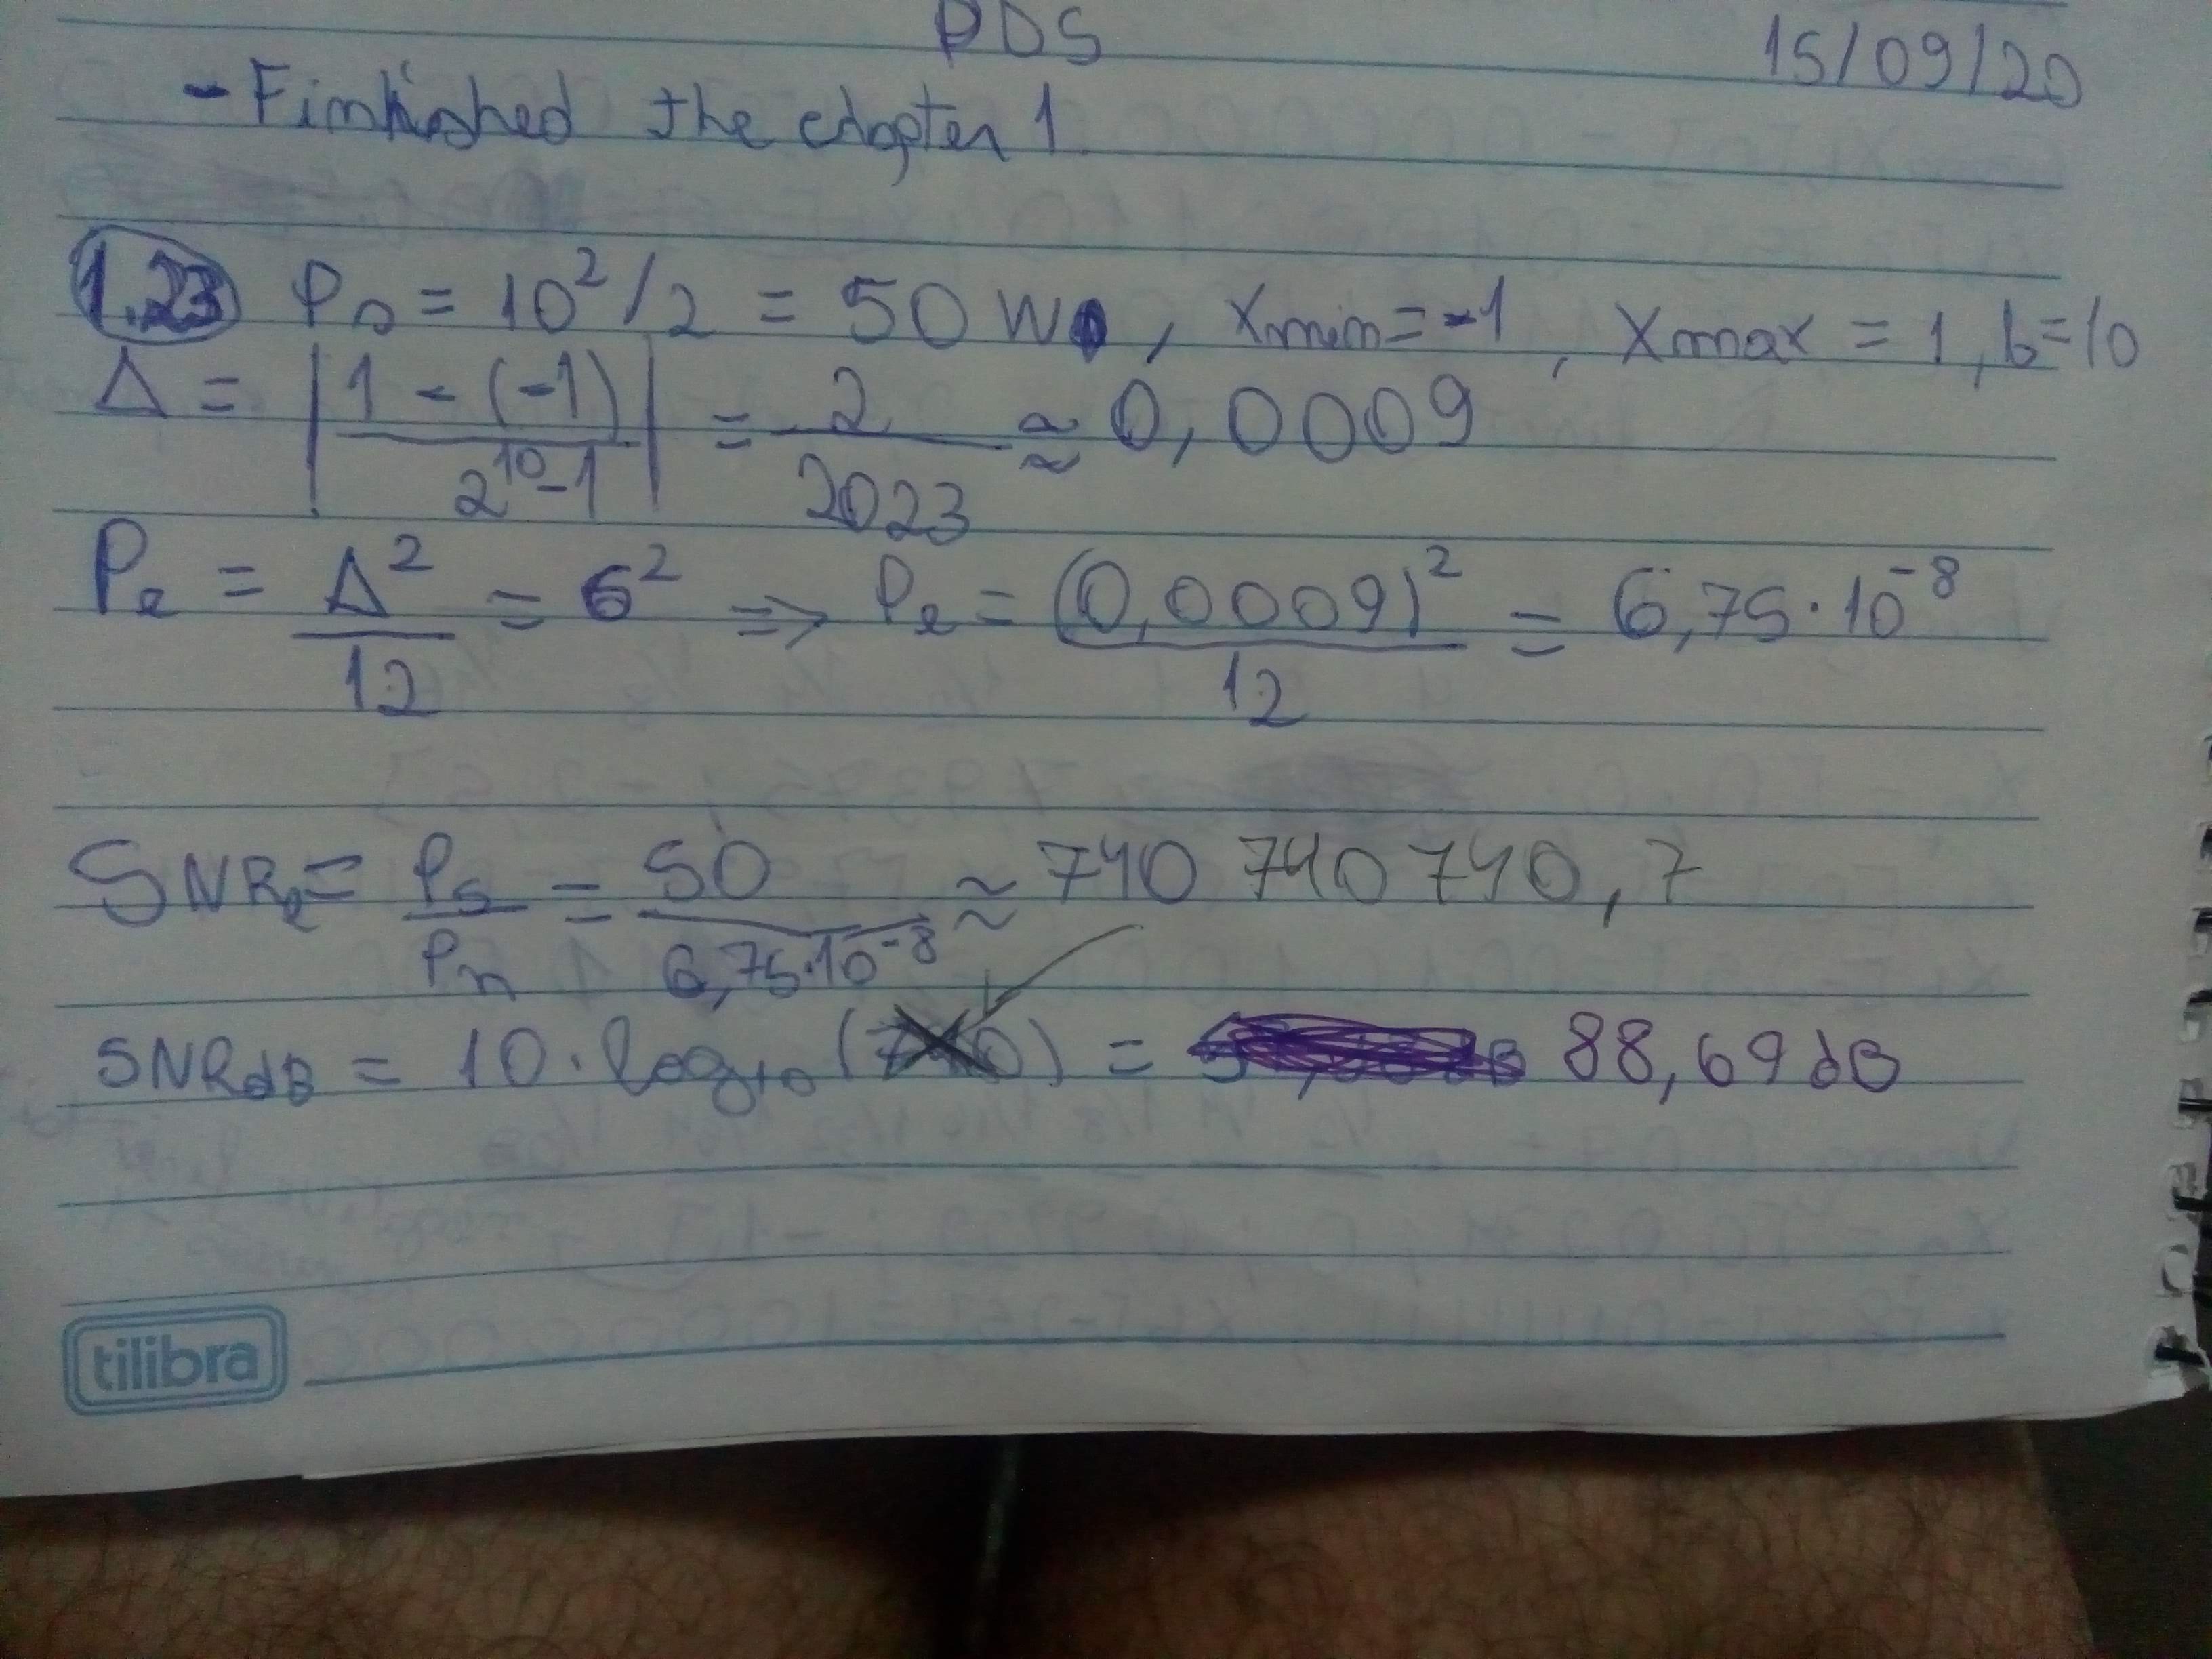 PDS
15/09/20
- Finished the chapter 1
1.23 Ps = 10²/2 = 50 W, xmin = -1, Xmax = 1, b=10
Δ = |1 - (-1) / 2¹⁰-1| = 2/2023 ≈ 0,0009
Pe = Δ²/12 = σ² => Pe = (0,0009)²/12 = 6,75·10⁻⁸
SNRe = Ps/Pn = 50/6,75·10⁻⁸ ≈ 740 740 740,7
SNRdB = 10·log₁₀( ) = 88,69 dB
tilibra